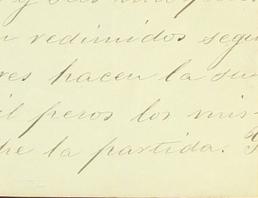 redimidos segu
res hacen la su
il pesos los mis
he la partida.